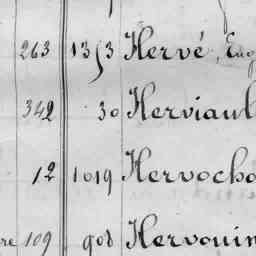 263 1353 Hervé, Esq
342 30 Herviaul
12 1019 Hervocho
re 109 908 Hervouin